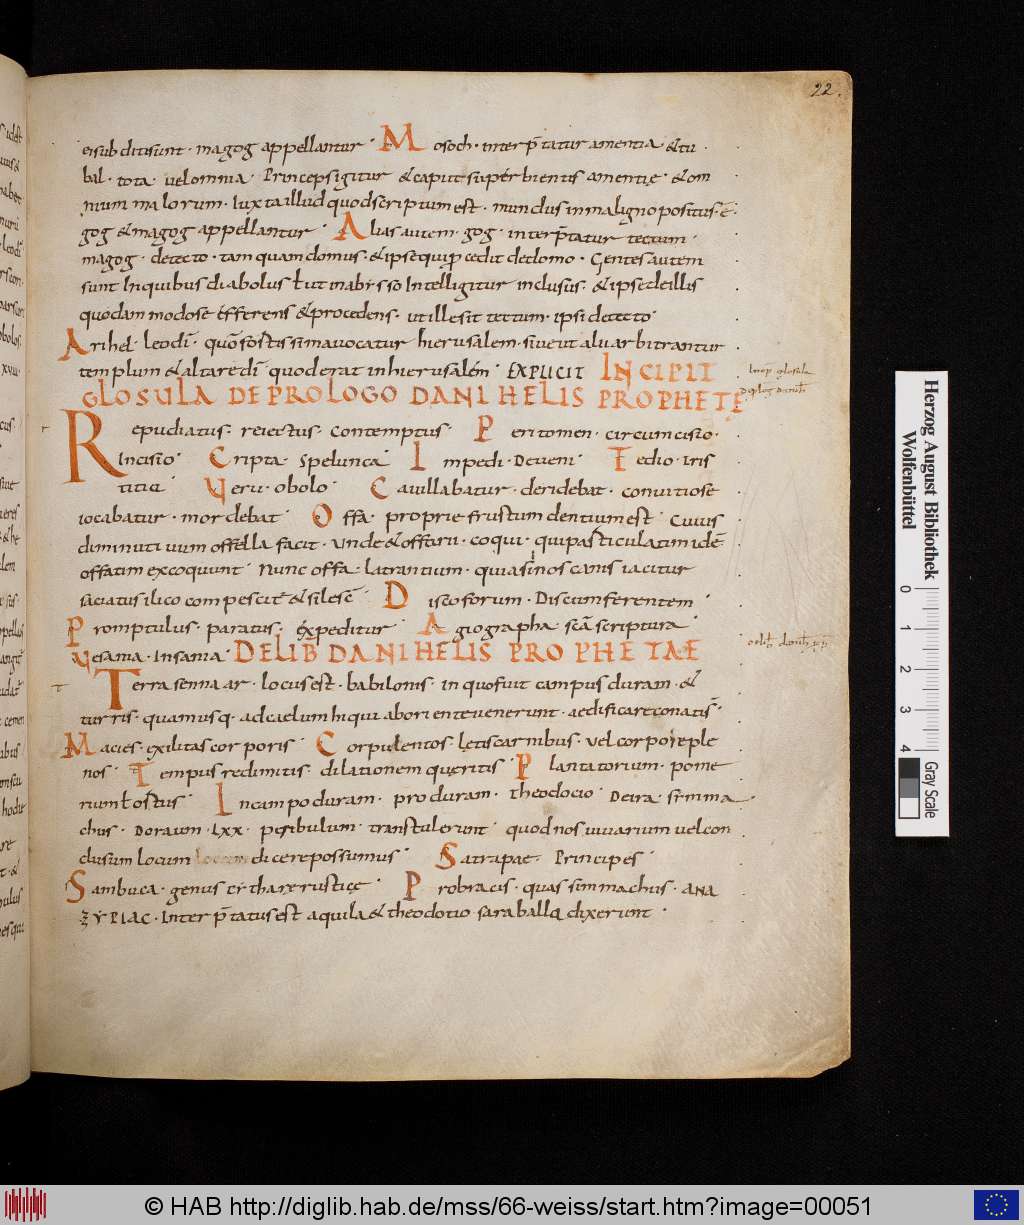 22.
eisubditisunt · magog appellantur · Mosoch · interp̄tatur amentia &tu
bal · tota uelomnia · Princepsigitur &caput superbientis amentię · &om
nium malorum · Iuxta illud quod scriptum est · mundus in maligno positus · ē ·
gog &magog appellantur · Alias autem · gog · interp̄tatur tectum ·
magog · detecto · tam quam domus · &ipse qui ꝓcedit dedomo · Gentes autem
sunt Inquibus diabolus ł ut inabysso Intelligitur inclusus · &ipse deillis
quodam modo se efferens &procedens · utille sit tectum · ipsi detecto ·
Arihel · leo dī · quō fortissima uocatur hierusalem · siue ut alii arbitrantur
templum &altare dī · quod erat in hierusalem · EXPLICIT INCIPIT
GLOSULA DE PROLOGO DANIHELIS PROPHETE
Repudiatus · reiectus · contemptus · Peritomen · circumcisio ·
Incisio · Cripta · Spelunca · Impedi · Deueni · Tedio · tris
titia · Veru · obolo · Cauillabatur · deridebat · conuitiose
iocabatur · mordebat · Offa · proprie frustum dentium est · Cuius
diminutiuum offella facit · Unde &offarii · coqui · qui pasticulatim idē
offatim excoquunt · Nunc offa · latrantium · quia si in os canis iacitur
saciatus ilico compescit &silescē · Discoforum · Discum ferentem ·
Promptulus · paratus · expeditur · Agiographa · scā scriptura ·
Vesania · Insania · DE LIB DANIHELIS PROPHETAE
Terra sennaar · locus est · babilonis · in quo fuit campus duram · &
turris · quam usq · ad caelum hi qui ab oriente uenerunt · aedificare conatis ·
Macies · exilitas corporis · Corpulentos · letis carnibus · uel corpore ple
nos · Tempus redimitis · dilationem quęritis · Plantatorium · pome
rium ł ostus · In campo duram · pro duram · theodocio · Deira · simma
chus · Doraum · LXX · peribulum · transtulerunt · quod nos uiuarium uel con
clusum locum dicere possumus · Satrapae · Principes ·
Sambuca · genus citharę rusticę · Probracis · quas simmachus · ANA
ΞYPIAC · Interp̄tatus est aquila &theodotio saraballa dixerunt ·
Herzog August Bibliothek
Wolfenbüttel
0 1 2 3 4
Gray Scale
© HAB http://diglib.hab.de/mss/66-weiss/start.htm?image=00051